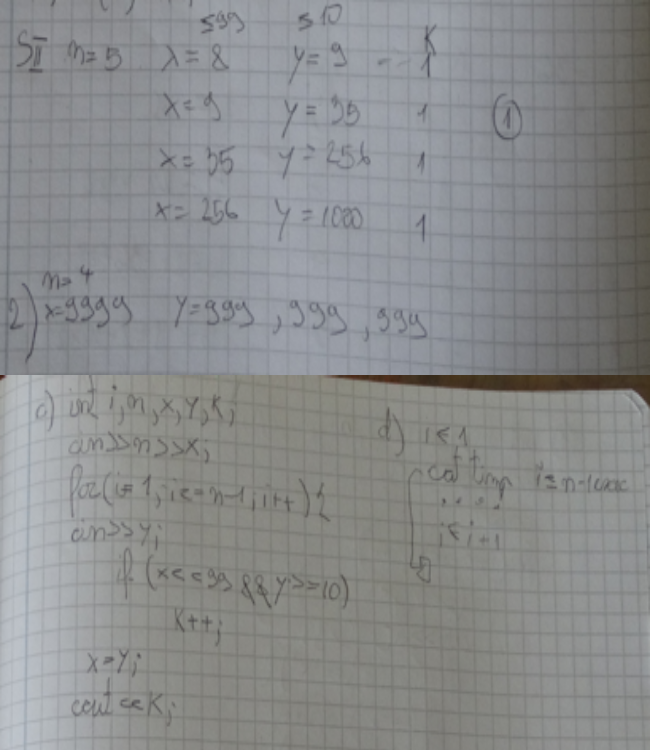 ≤99 ≤10
SII n=5 x=8 y=9 -- K 1
x=9 y=35 1 ①
x=35 y=256 1
x=256 y=1020 1
n=4
2) x=9999 y=999, 999, 999
c) int i, n, x, y, K;
cin>>n>>x;
for(i=1, i<=n-1, i++){
cin>>y;
if (x<=99 && y>=10)
K++;
x=y;
cout<<K;
d) i←1
cat timp i≤n-1 exec
....
i←i+1